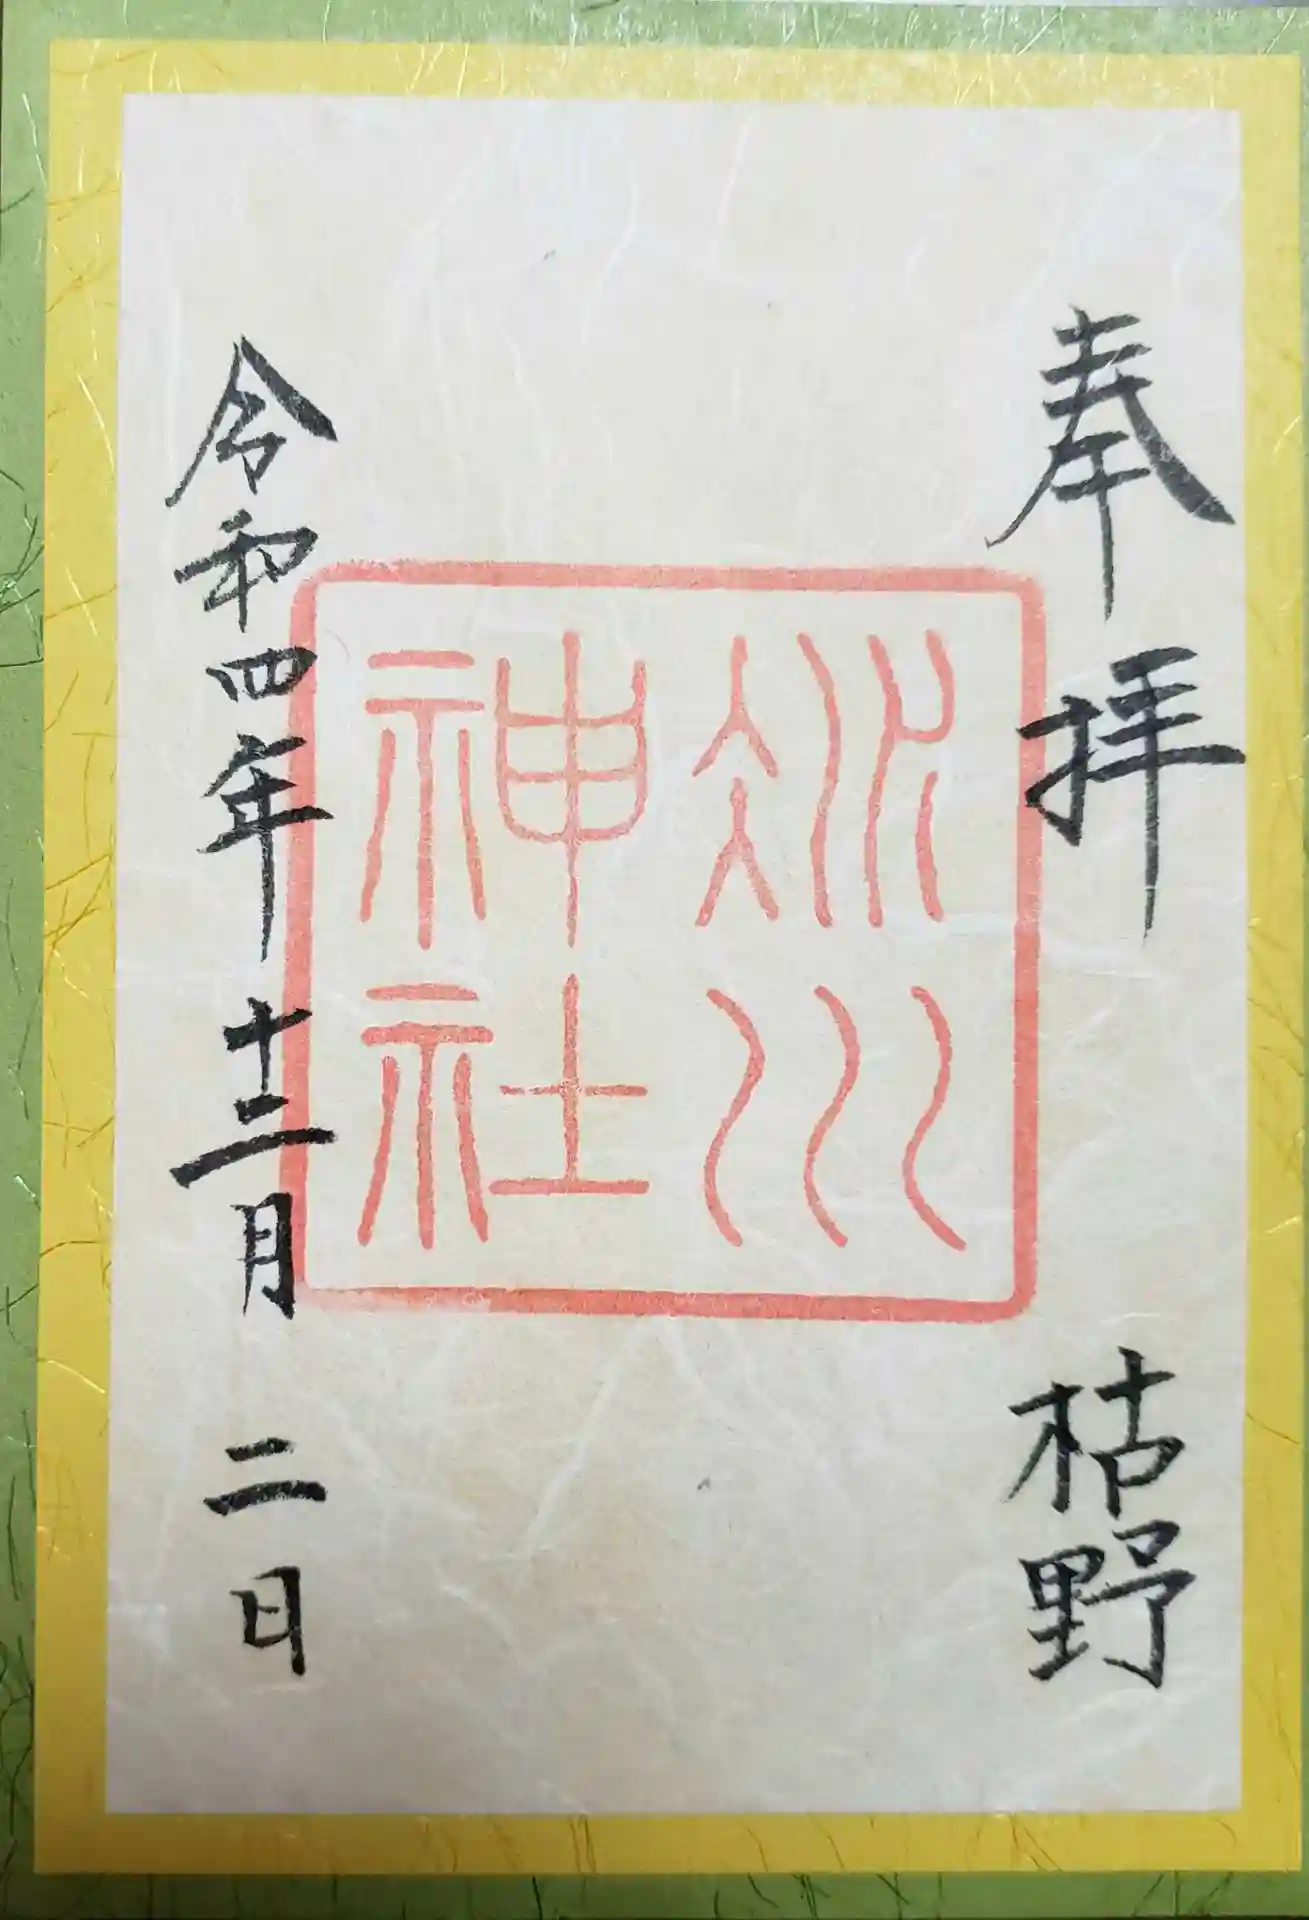 奉拝 枯野
冰川
神社
令和四年十二月二日